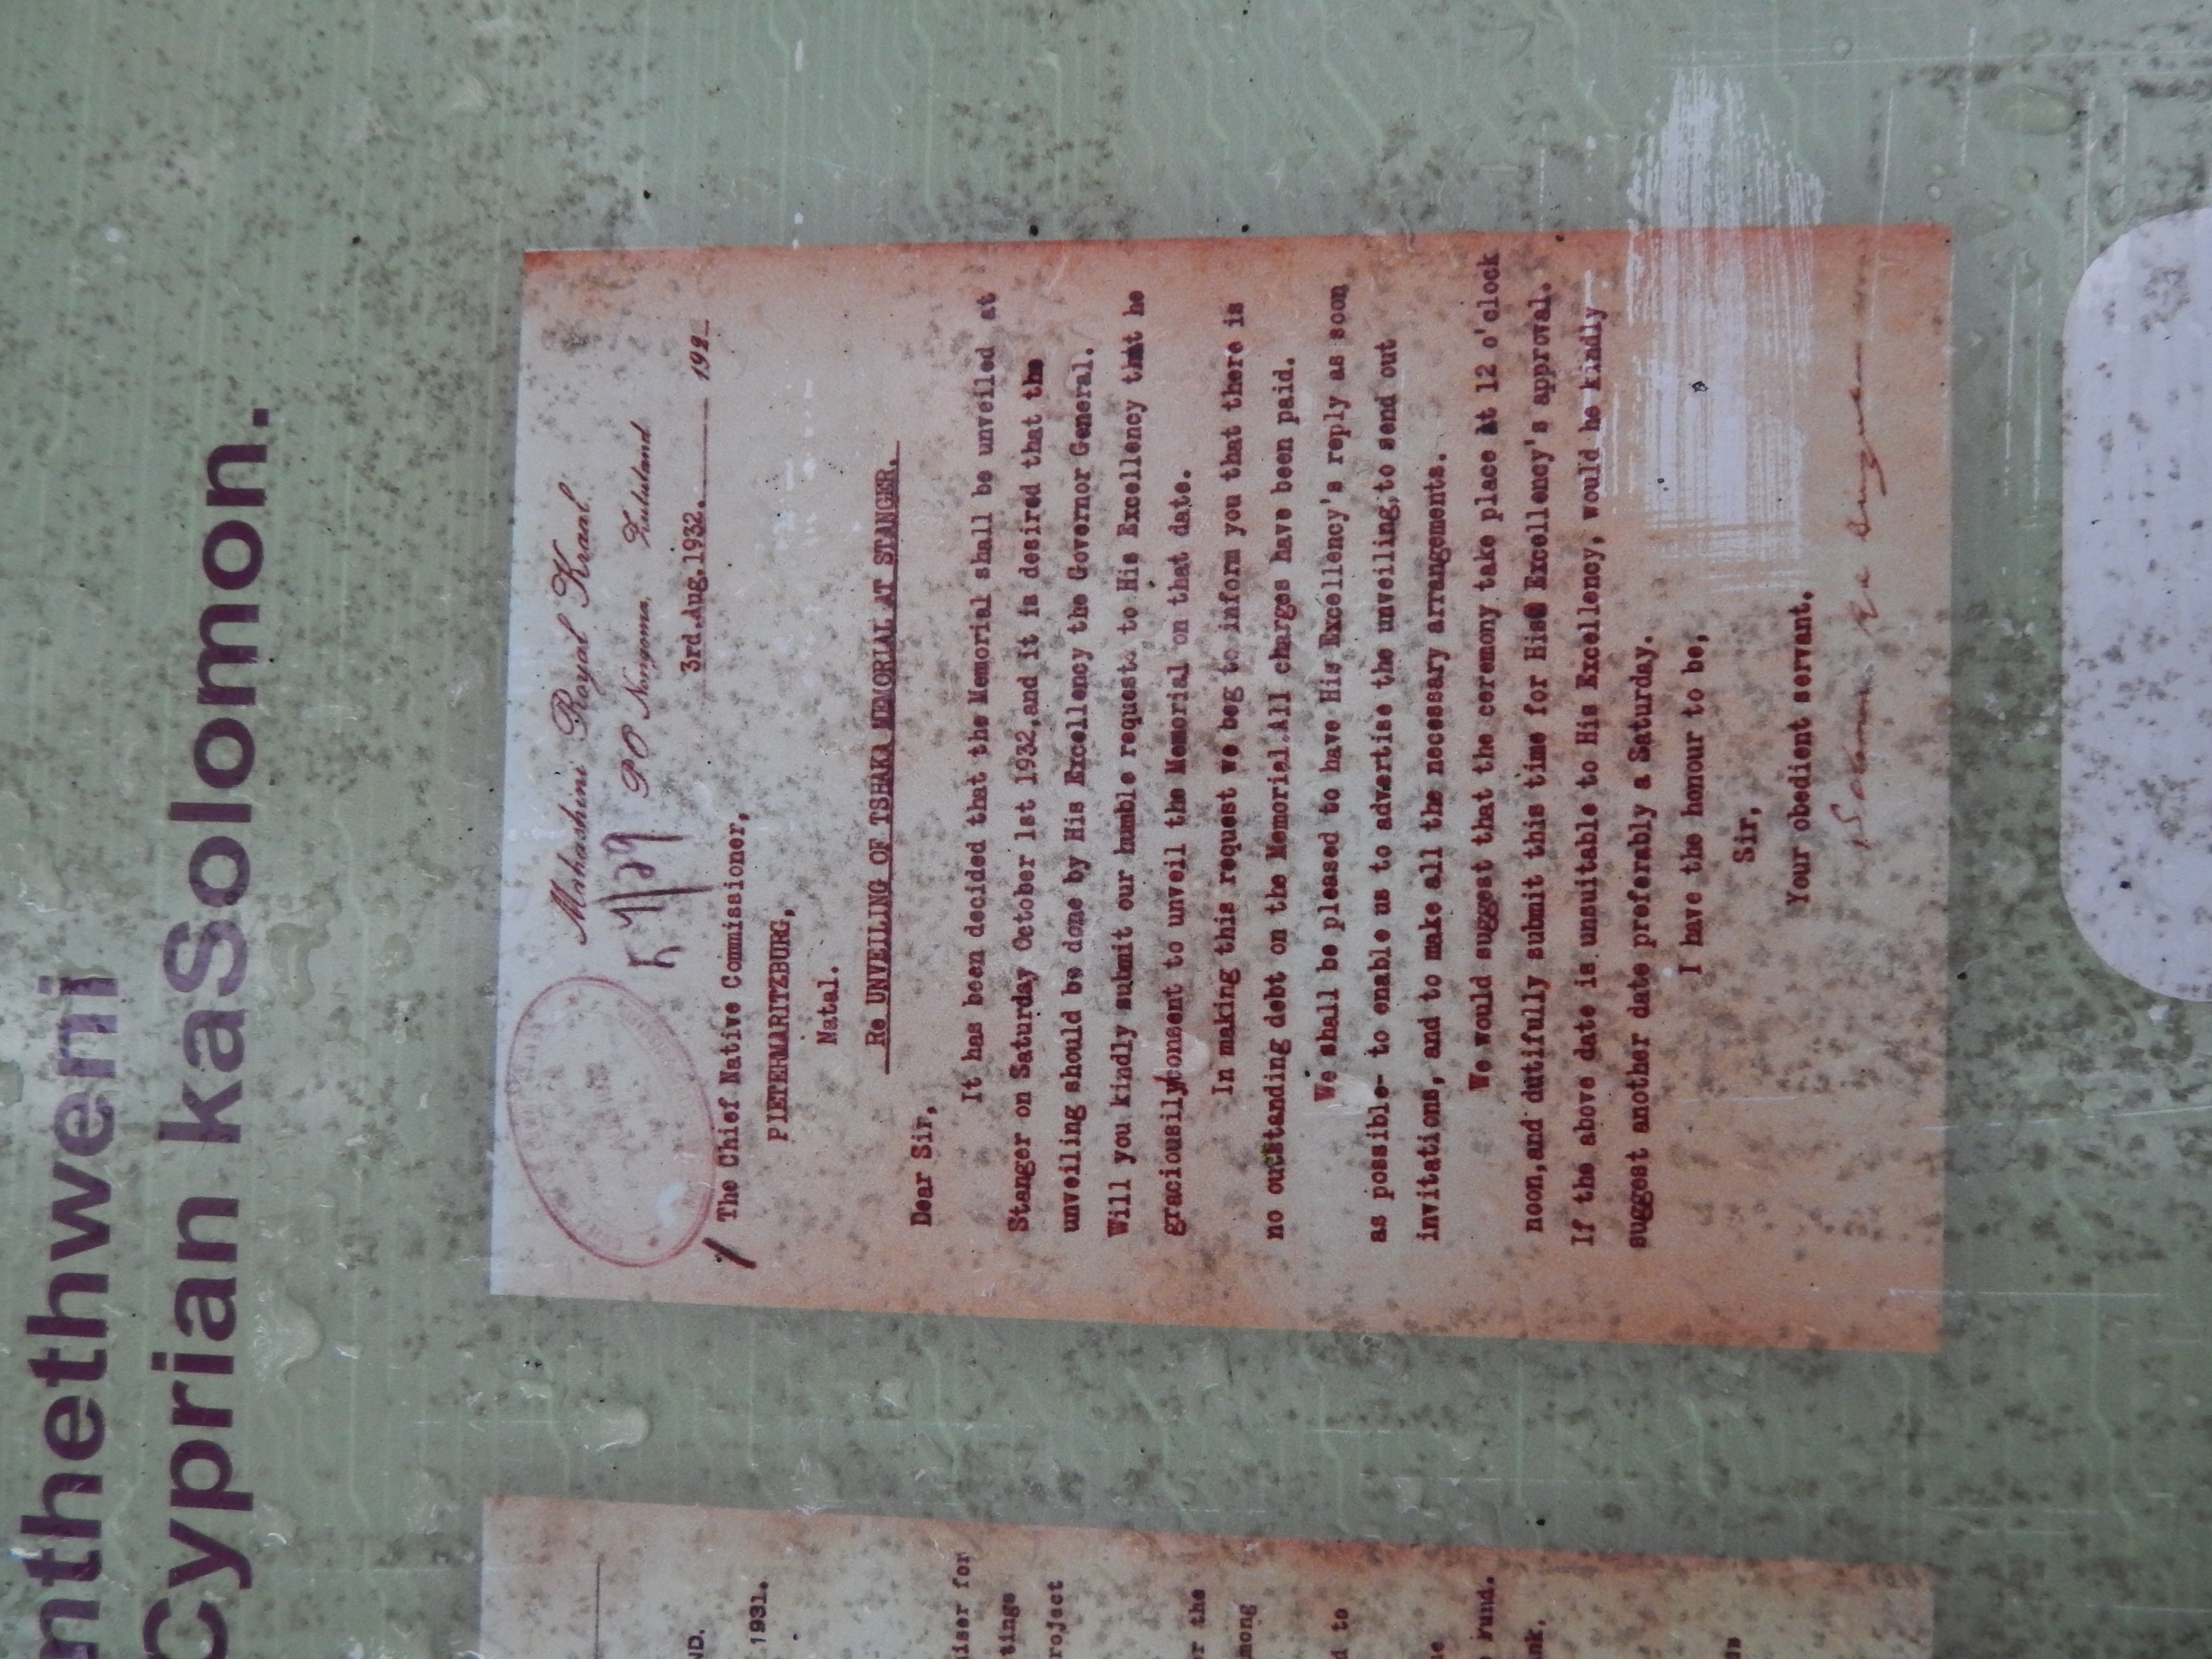 nthethweni
Cyprian kaSolomon.
Mahashini Royal Kraal
PO Nongoma, Zululand
3rd.Aug.1932. 192
The Chief Native Commissioner,
PIETERMARITZBURG,
Natal.
Re UNVEILING OF TSHAKA MEMORIAL AT STANGER.
Dear Sir,
It has been decided that the Memorial shall be unveiled at
Stanger on Saturday October 1st 1932,and it is desired that the
unveiling should be done by His Excellency the Governor General.
Will you kindly submit our humble requests to His Excellency that he
graciously consent to unveil the Memorial on that date.
In making this request we beg to inform you that there is
no outstanding debt on the Memorial.All charges have been paid.
We shall be pleased to have His Excellency's reply as soon
as possible- to enable us to advertise the unveiling,to send out
invitations, and to make all the necessary arrangements.
We would suggest that the ceremony take place at 12 o'clock
noon,and dutifully submit this time for His Excellency's approval.
If the above date is unsuitable to His Excellency, would he kindly
suggest another date preferably a Saturday.
I have the honour to be,
Sir,
Your obedient servant.
ND.
1931.
iser for
tings
roject
r the
among
d to
Fund.
nk.